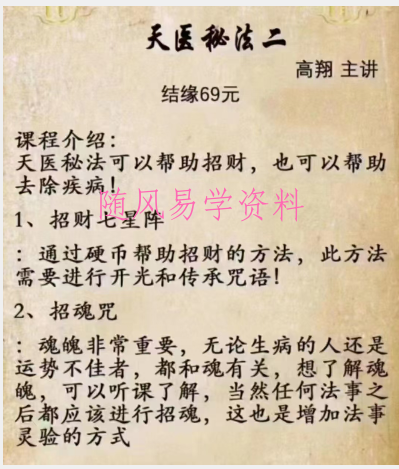 天医秘法二
高翔 主讲
结缘69元
课程介绍：
天医秘法可以帮助招财，也可以帮助
去除疾病！
随风易学资料
1、招财七星阵
：通过硬币帮助招财的方法，此方法
需要进行开光和传承咒语！
2、招魂咒
：魂魄非常重要，无论生病的人还是
运势不佳者，都和魂有关，想了解魂
魄，可以听课了解，当然任何法事之
后都应该进行招魂，这也是增加法事
灵验的方式